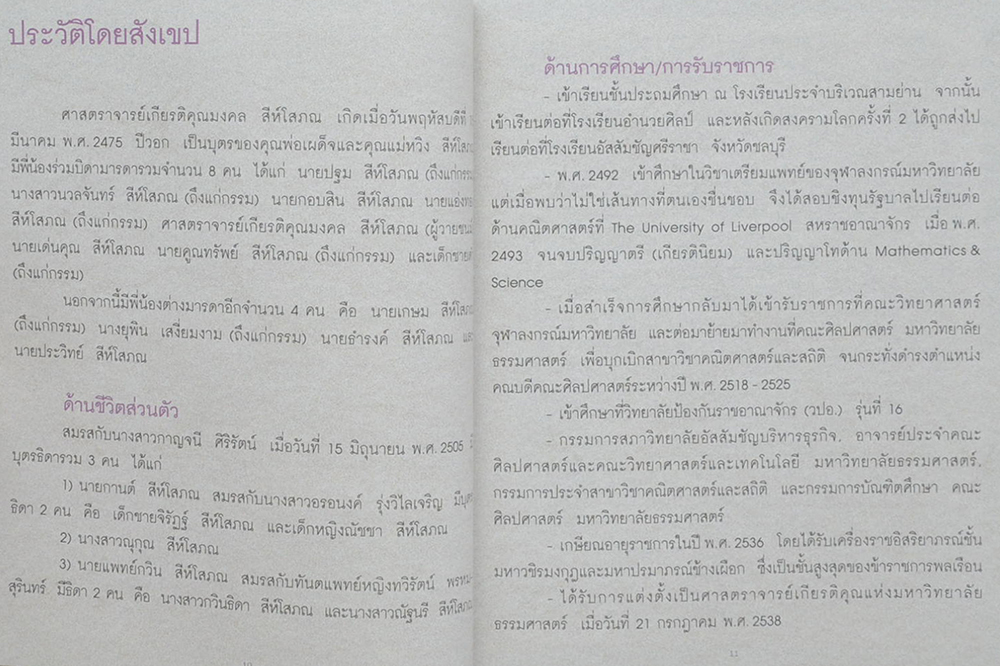 ประวัติโดยสังเขป
ศาสตราจารย์เกียรติคุณมงคล สีห์โสภณ เกิดเมื่อวันพฤหัสบดีที่
มีนาคม พ.ศ. 2475 ปีวอก เป็นบุตรของคุณพ่อเผด็จและคุณแม่หวิง สีห์โสภณ
มีพี่น้องร่วมบิดามารดารวมจำนวน 8 คน ได้แก่ นายปฐม สีห์โสภณ (ถึงแก่กรรม)
นางสาวนวลจันทร์ สีห์โสภณ (ถึงแก่กรรม) นายกอบสิน สีห์โสภณ
สีห์โสภณ (ถึงแก่กรรม) ศาสตราจารย์เกียรติคุณมงคล สีห์โสภณ
นายเด่นคุณ สีห์โสภณ นายคูณทรัพย์ สีห์โสภณ (ถึงแก่กรรม) และเด็กชาย
(ถึงแก่กรรม)
นอกจากนี้มีพี่น้องต่างมารดาอีกจำนวน 4 คน คือ นายเกษม สีห์โสภณ
(ถึงแก่กรรม) นางยุพิน เสงี่ยมงาม (ถึงแก่กรรม) นายธำรงค์ สีห์โสภณ และ
นายประวิทย์ สีห์โสภณ
ด้านชีวิตส่วนตัว
สมรสกับนางสาวกาญจนี ศิริรัตน์ เมื่อวันที่ 15 มิถุนายน พ.ศ. 2505
บุตรธิดารวม 3 คน ได้แก่
1) นายกานต์ สีห์โสภณ สมรสกับนางสาวอรอนงค์ รุ่งวิไลเจริญ มีบุตร
ธิดา 2 คน คือ เด็กชายจิรัฏฐ์ สีห์โสภณ และเด็กหญิงณัชชา สีห์โสภณ
2) นางสาวณุกุณ สีห์โสภณ
3) นายแพทย์กวิน สีห์โสภณ สมรสกับทันตแพทย์หญิงทวิรัตน์
สุรินทร์ มีธิดา 2 คน คือ นางสาวกวินธิดา สีห์โสภณ และนางสาวณัฐนรี สีห์โสภณ
10
ด้านการศึกษา/การรับราชการ
- เข้าเรียนชั้นประถมศึกษา ณ โรงเรียนประจำบริเวณสามย่าน จากนั้น
เข้าเรียนต่อที่โรงเรียนอำนวยศิลป์ และหลังเกิดสงครามโลกครั้งที่ 2 ได้ถูกส่งไป
เรียนต่อที่โรงเรียนอัสสัมชัญศรีราชา จังหวัดชลบุรี
- พ.ศ. 2492 เข้าศึกษาในวิชาเตรียมแพทย์ของจุฬาลงกรณ์มหาวิทยาลัย
แต่เมื่อพบว่าไม่ใช่เส้นทางที่ตนเองชื่นชอบ จึงได้สอบชิงทุนรัฐบาลไปเรียนต่อ
ด้านคณิตศาสตร์ที่ The University of Liverpool สหราชอาณาจักร เมื่อ พ.ศ.
2493 จนจบปริญญาตรี (เกียรตินิยม) และปริญญาโทด้าน Mathematics &
Science
- เมื่อสำเร็จการศึกษากลับมาได้เข้ารับราชการที่คณะวิทยาศาสตร์
จุฬาลงกรณ์มหาวิทยาลัย และต่อมาย้ายมาทำงานที่คณะศิลปศาสตร์ มหาวิทยาลัย
ธรรมศาสตร์ เพื่อบุกเบิกสาขาวิชาคณิตศาสตร์และสถิติ จนกระทั่งดำรงตำแหน่ง
คณบดีคณะศิลปศาสตร์ระหว่างปี พ.ศ. 2518 - 2525
- เข้าศึกษาที่วิทยาลัยป้องกันราชอาณาจักร (วปอ.) รุ่นที่ 16
- กรรมการสภาวิทยาลัยอัสสัมชัญบริหารธุรกิจ, อาจารย์ประจำคณะ
ศิลปศาสตร์และคณะวิทยาศาสตร์และเทคโนโลยี มหาวิทยาลัยธรรมศาสตร์,
กรรมการประจำสาขาวิชาคณิตศาสตร์และสถิติ และกรรมการบัณฑิตศึกษา คณะ
ศิลปศาสตร์ มหาวิทยาลัยธรรมศาสตร์
- เกษียณอายุราชการในปี พ.ศ. 2536 โดยได้รับเครื่องราชอิสริยาภรณ์ชั้น
มหาวชิรมงกุฎและมหาปรมาภรณ์ช้างเผือก ซึ่งเป็นชั้นสูงสุดของข้าราชการพลเรือน
- ได้รับการแต่งตั้งเป็นศาสตราจารย์เกียรติคุณแห่งมหาวิทยาลัย
ธรรมศาสตร์ เมื่อวันที่ 21 กรกฎาคม พ.ศ. 2538
11